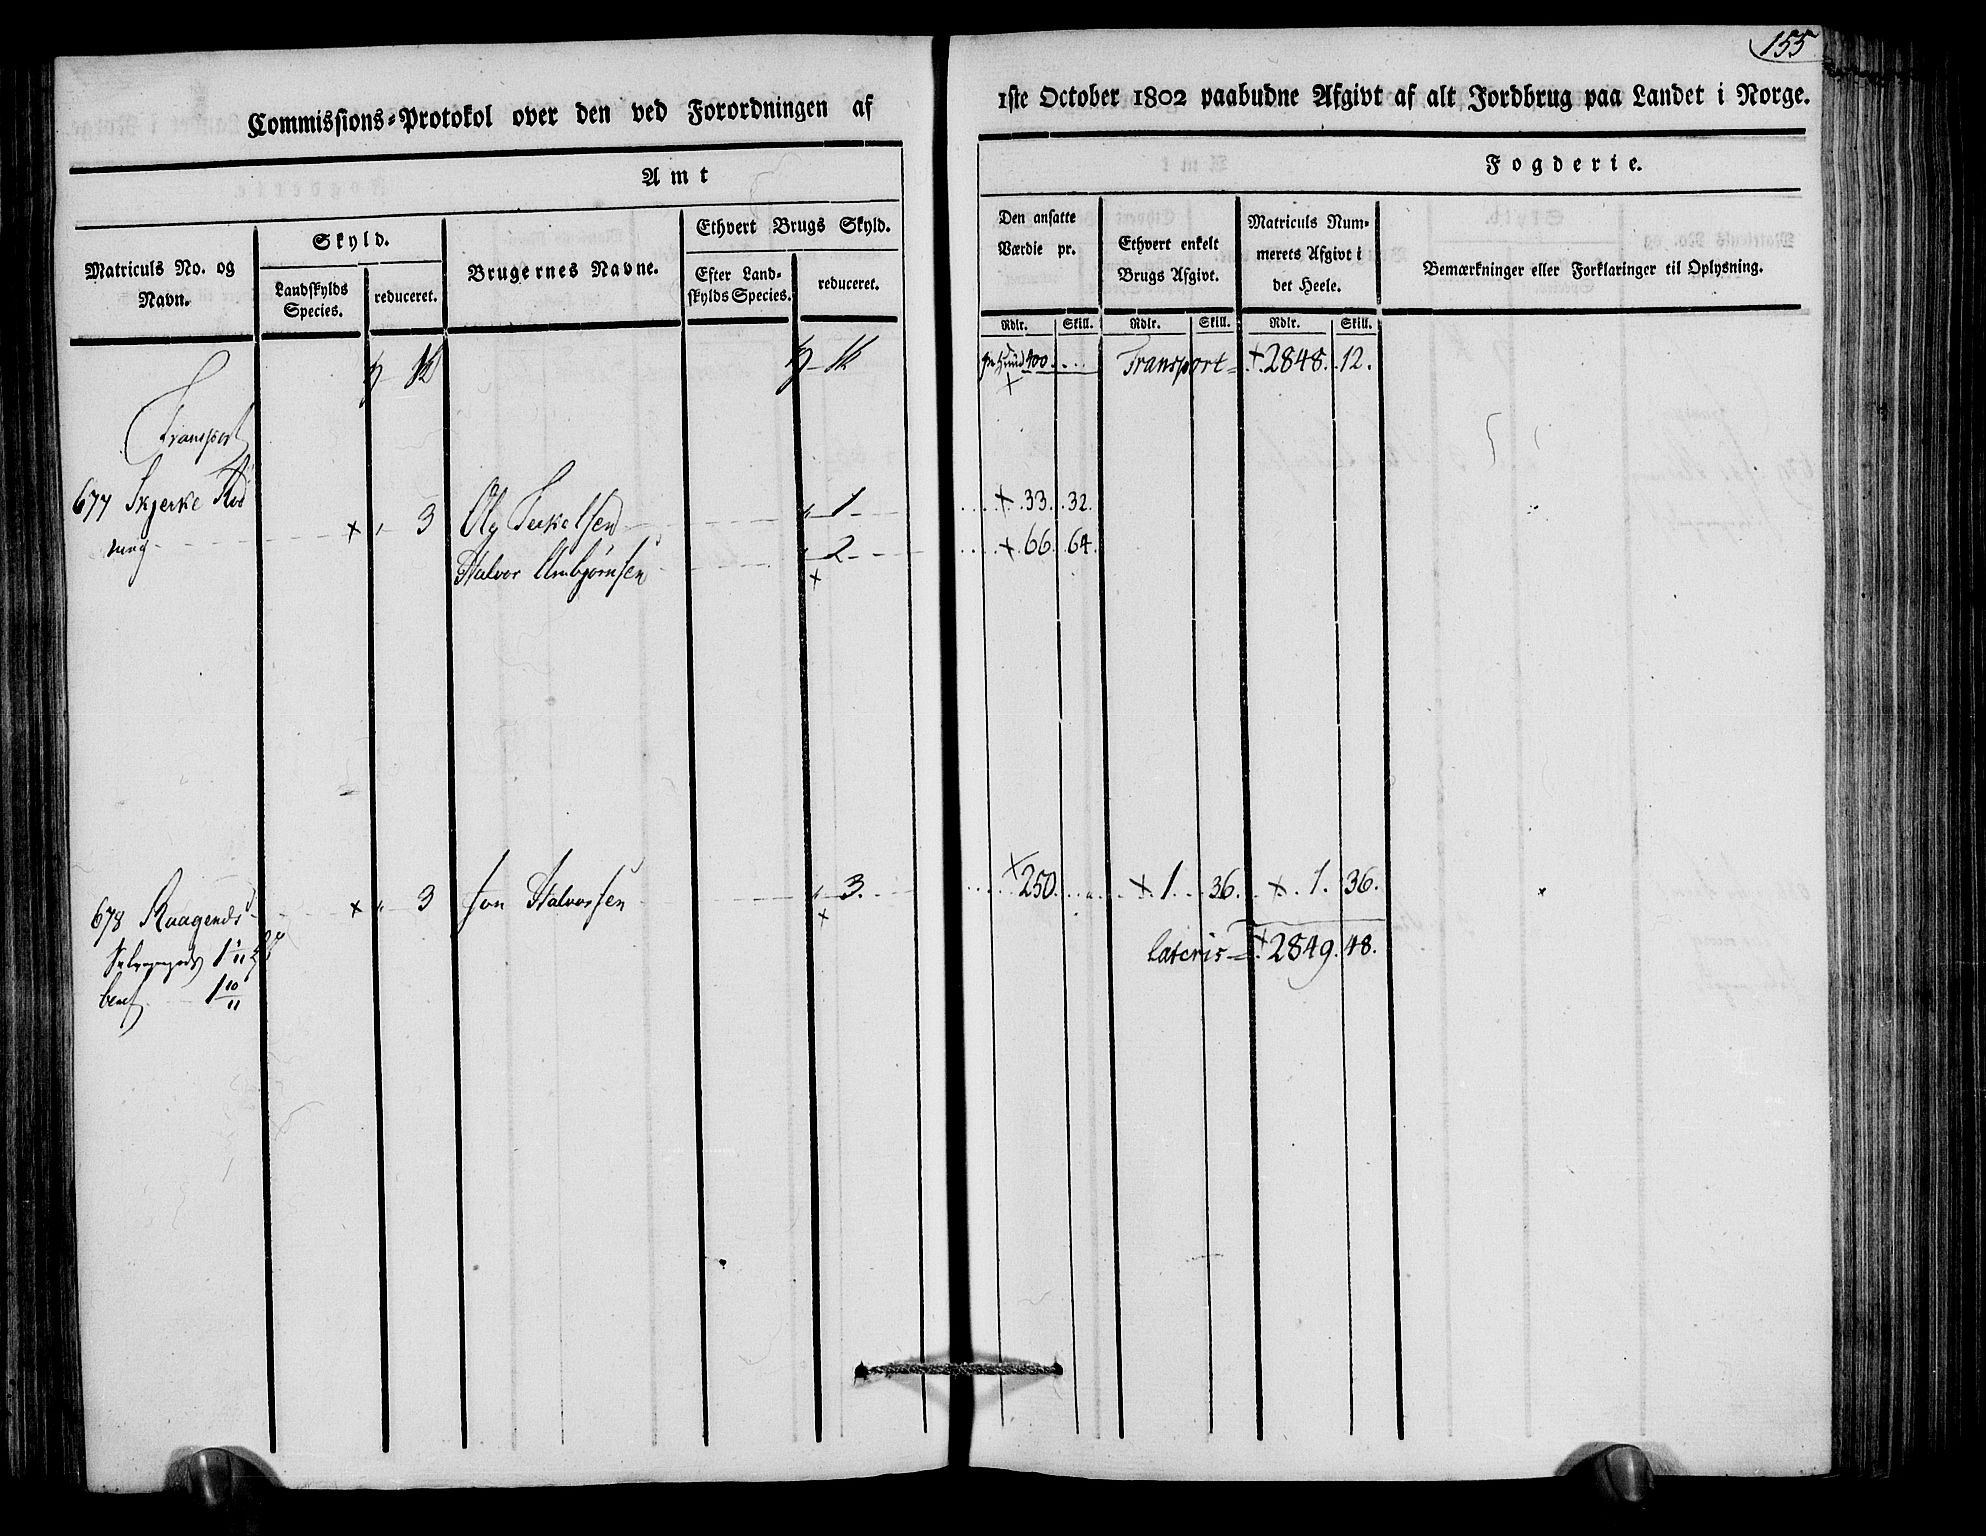 155
Commissions-Protokol over den ved Forordningen af
1ste October 1802 paabudne Afgivt af alt Jordbrug paa Landet i Norge.
Amt
Fogderie.
Matriculs No. og
Navn.
Skyld.
Landskylds
Species.
reduceret.
Brugernes Navne.
Ethvert Brugs Skyld.
Efter Land-
skylds Species.
reduceret.
Den ansatte
Værdie pr.
Ethvert enkelt
Brugs Afgivt.
Matriculs Num-
merets Afgivt i
det Heele.
Bemærkninger eller Forklaringer til Oplysning.
Rdlr. Skill. Rdlr. Skill. Rdlr. Skill.
Transport = 2848. 12.
Transport
677 Skjerke Rød
ning × „ 3 Ole Terkelsen „ 1 × 33. 32.
Halvor Anbjørnsen „ 2 × 66. 64.
×
678 Kaagends × „ 3 Jon Halvorsen „ 3. × 250 × 1. 36. × 1. 36.
×
1 1/11
lateris = × 2849. 48.
benf 1 10/11